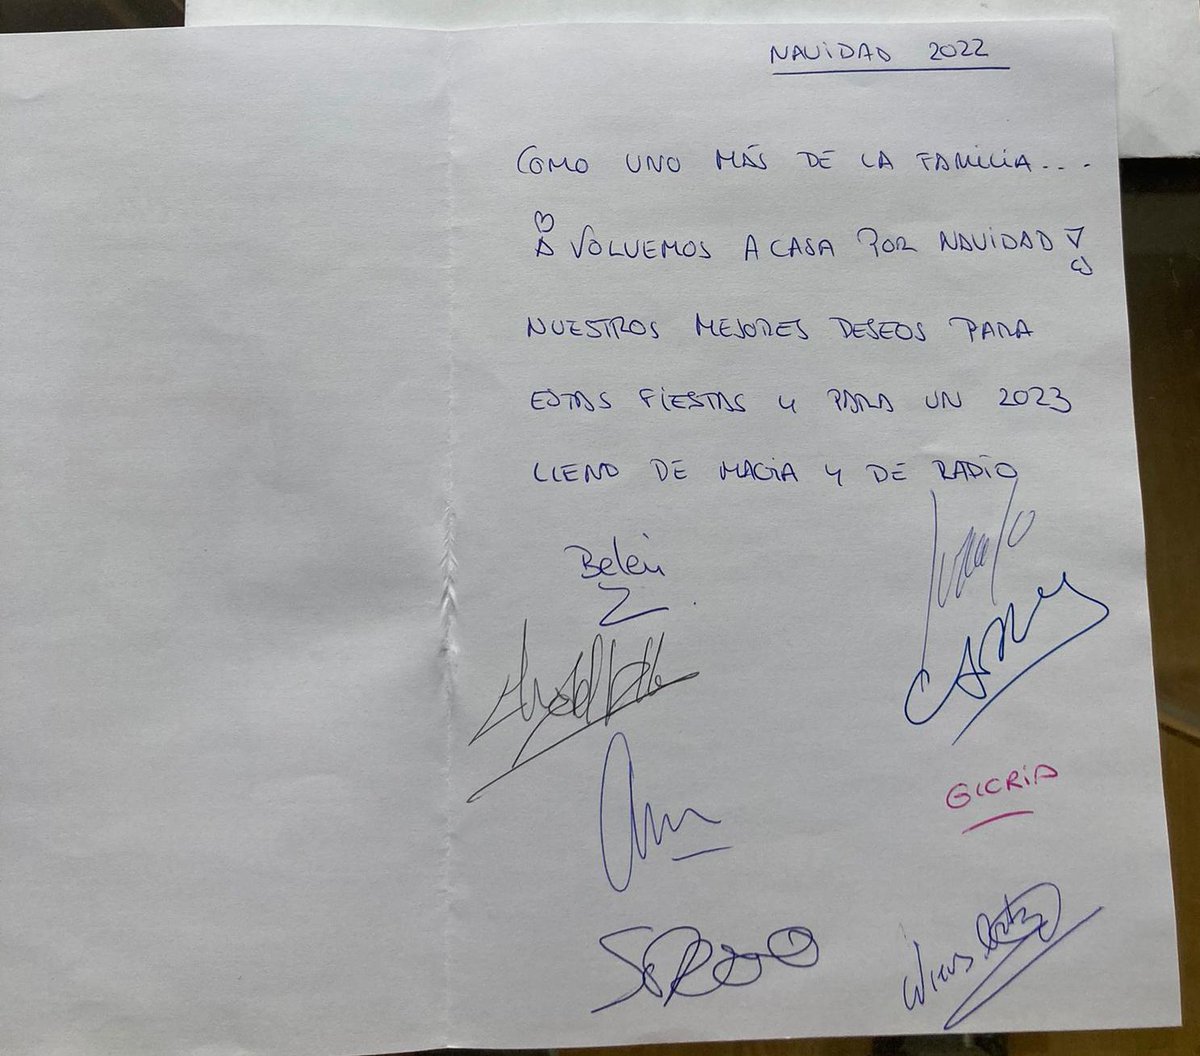 NAViDAD 2022
COMO UNO MÁS DE LA FAMiLiA....
VOLVEMOS A CASA POR NAViDAD
NUESTROS MEJORES DESEOS PARA
ESTAS FiESTAS Y PARA UN 2023
LLENO DE MAGiA Y DE RADiO
Belén
GLORiA